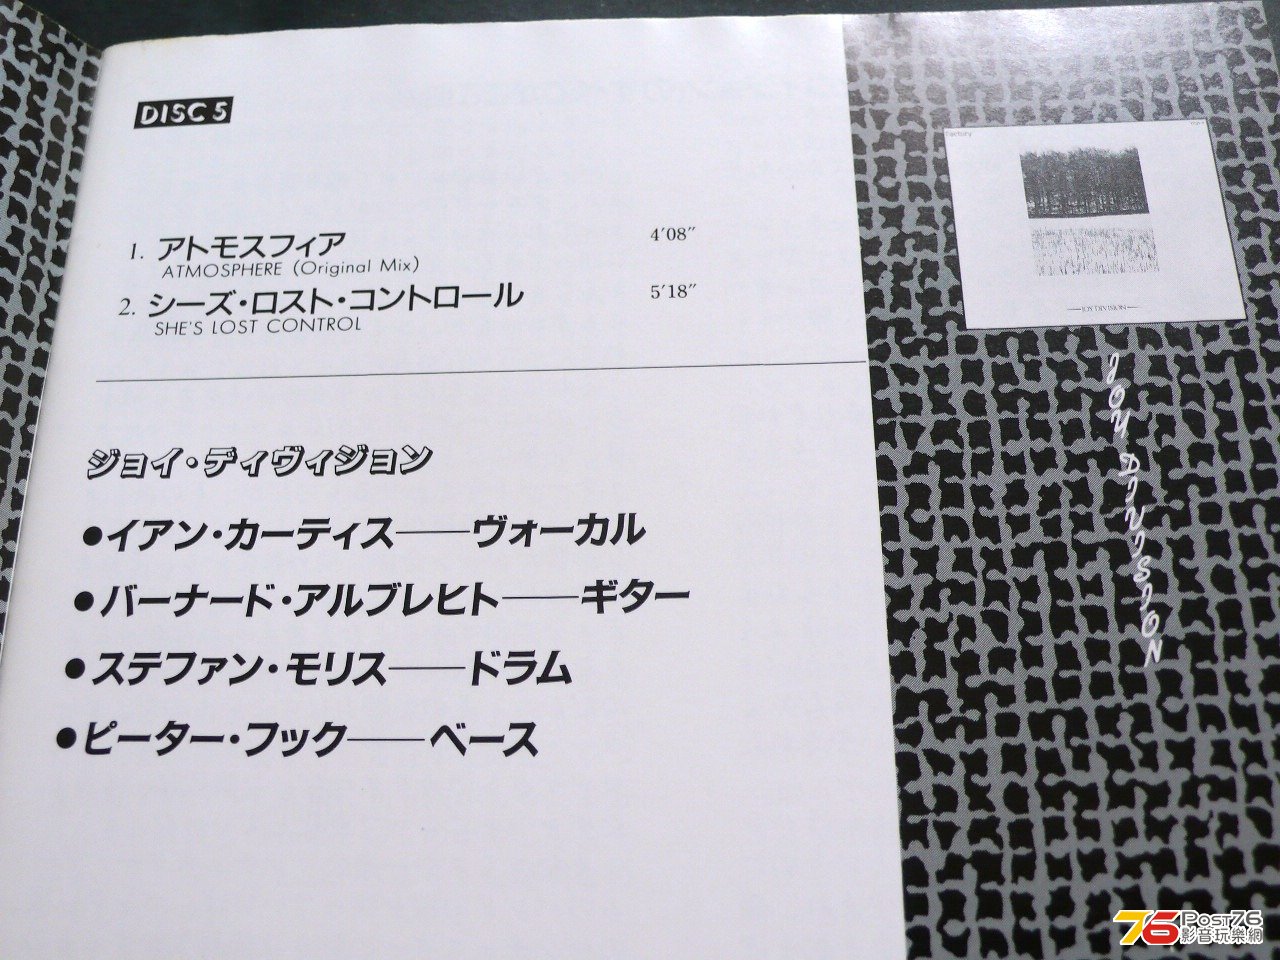 DISC 5
1. アトモスフィア 4'08"
ATMOSPHERE (Original Mix)
2. シーズ・ロスト・コントロール 5'18"
SHE'S LOST CONTROL
ジョイ・ディヴィジョン
●イアン・カーティス——ヴォーカル
●バーナード・アルブレヒト——ギター
●ステファン・モリス——ドラム
●ピーター・フック——ベース
Factory
JOY DIVISION
JOY DIVISION
76 POST76
影音玩樂網